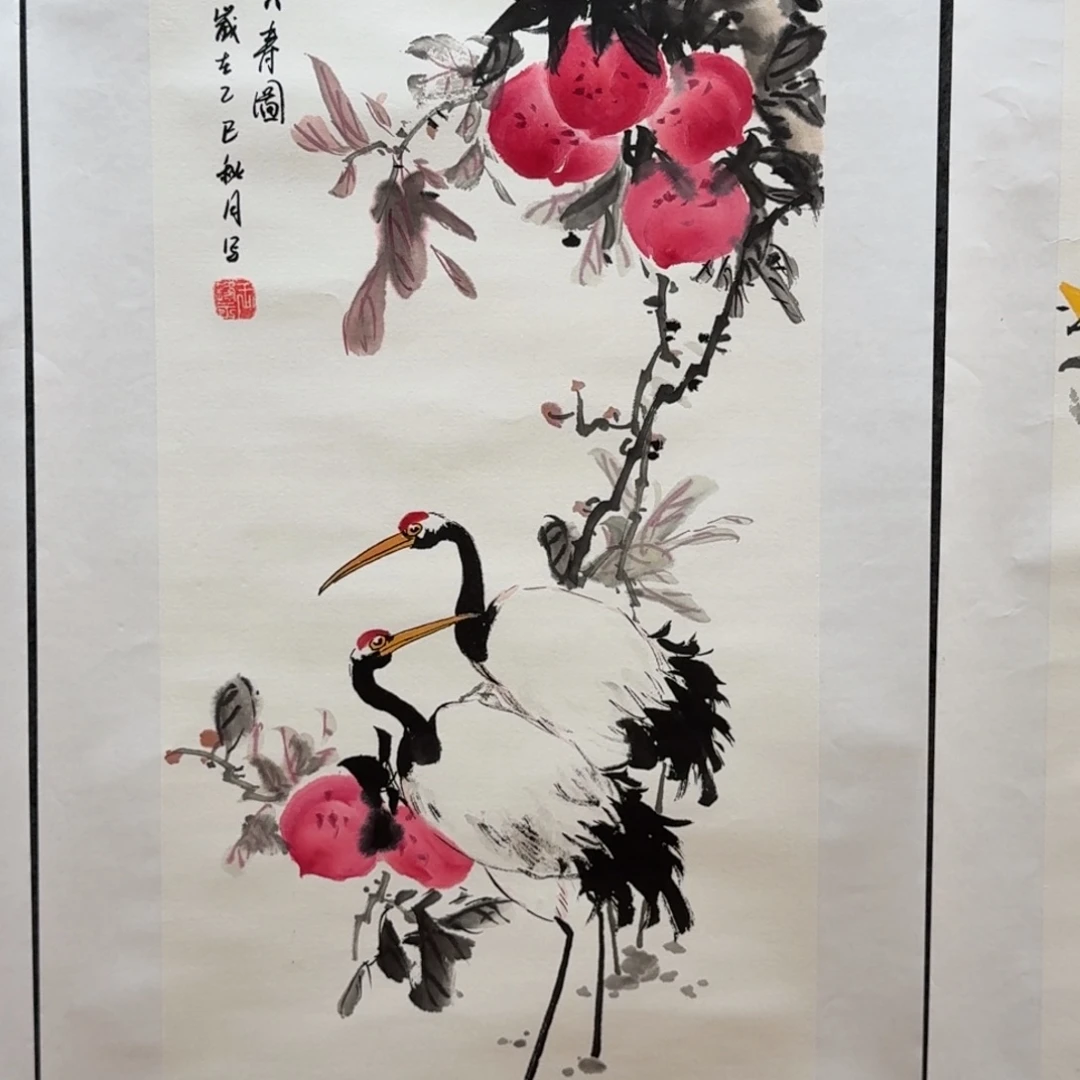 壽圖
歲在乙巳秋月写